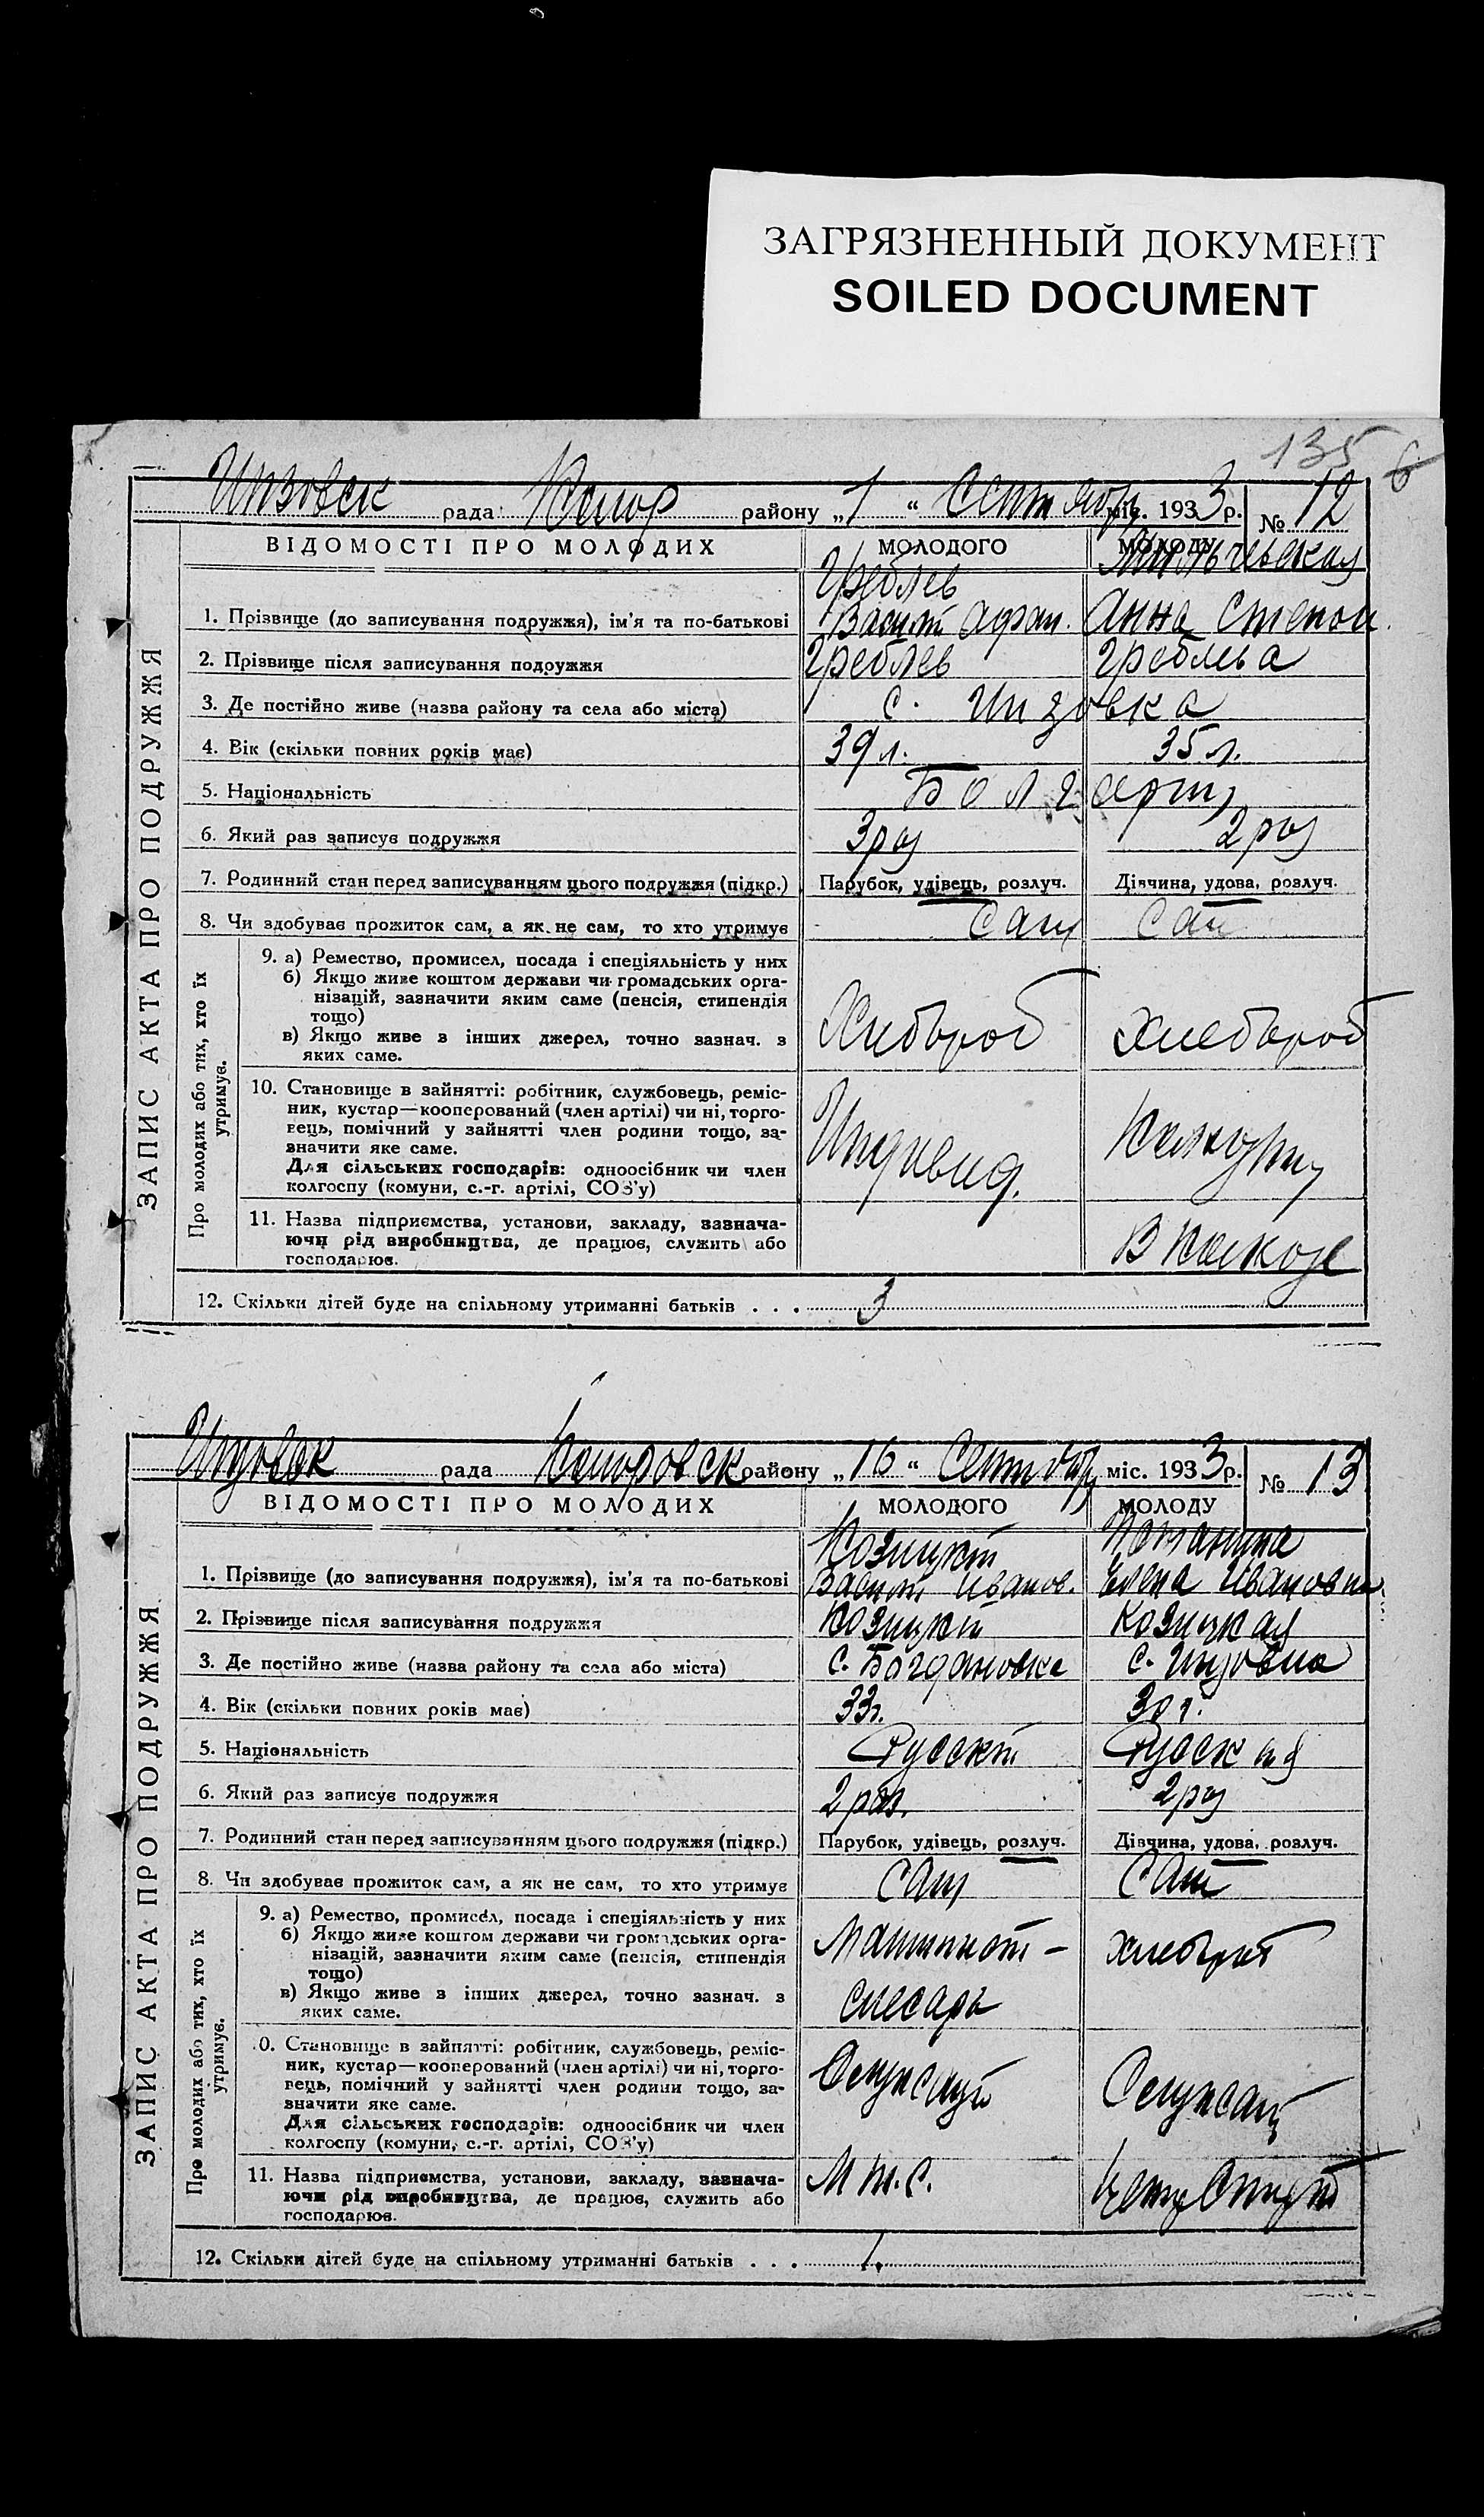 ЗАГРЯЗНЕННЫЙ ДОКУМЕНТ
SOILED DOCUMENT
135
6
Инзовск рада Колор району „1“ Сентябр міс. 1933 р. № 12
ВІДОМОСТІ ПРО МОЛОДИХ МОЛОДОГО МОЛОДУ
Греблев
1. Прізвище (до записування подружжя), ім'я та по-батькові Васил Афан. Анна Степан.
2. Прізвище після записування подружжя Греблев Греблева
3. Де постійно живе (назва району та села або міста) с. Инзовка
4. Вік (скільки повних років має) 39 л. 35 л.
5. Національність Болгары
6. Який раз записує подружжя 3 раз 2 раз
7. Родинний стан перед записуванням цього подружжя (підкр.) Парубок, удівець, розлуч. Дівчина, удова, розлуч.
8. Чи здобуває прожиток сам, а як не сам, то хто утримує Сам Сам
ЗАПИС АКТА ПРО ПОДРУЖЖЯ
Про молодих або тих, хто їх утримує.
9. а) Ремество, промисел, посада і спеціяльність у них
б) Якщо живе коштом держави чи громадських орга-
нізацій, зазначити яким саме (пенсія, стипендія
тощо) Хлебороб Хлебороб
в) Якщо живе з інших джерел, точно зазнач. з
яких саме.
10. Становище в зайнятті: робітник, службовець, реміс-
ник, кустар—кооперований (член артілі) чи ні, торго-
вець, помічний у зайнятті член родини тощо, за-
значити яке саме. Индивид.
Для сільських господарів: одноосібник чи член
колгоспу (комуни, с.-г. артілі, СОЗ'у)
11. Назва підприємства, установи, закладу, зазнача-
ючи рід виробництва, де працює, служить або В колхозе
господарює.
12. Скільки дітей буде на спільному утриманні батьків . . . 3
Инзовск рада району „16“ Сентябр міс. 1933 р. № 13
ВІДОМОСТІ ПРО МОЛОДИХ МОЛОДОГО МОЛОДУ
Козицкий
1. Прізвище (до записування подружжя), ім'я та по-батькові Васил Иванов. Елена Ивановна
2. Прізвище після записування подружжя Козицкий Козицкая
3. Де постійно живе (назва району та села або міста) с. Богдановка с. Инзовка
4. Вік (скільки повних років має) 33 г. 30 л.
5. Національність Русский Русская
6. Який раз записує подружжя 2 раз. 2 раз
7. Родинний стан перед записуванням цього подружжя (підкр.) Парубок, удівець, розлуч. Дівчина, удова, розлуч.
8. Чи здобуває прожиток сам, а як не сам, то хто утримує Сам Сам
ЗАПИС АКТА ПРО ПОДРУЖЖЯ
Про молодих або тих, хто їх утримує.
9. а) Ремество, промисел, посада і спеціяльність у них
б) Якщо живе коштом держави чи громадських орга- Машинист - Хлебороб
нізацій, зазначити яким саме (пенсія, стипендія
тощо)
в) Якщо живе з інших джерел, точно зазнач. з слесарь
яких саме.
10. Становище в зайнятті: робітник, службовець, реміс-
ник, кустар—кооперований (член артілі) чи ні, торго-
вець, помічний у зайнятті член родини тощо, за-
значити яке саме.
Для сільських господарів: одноосібник чи член
колгоспу (комуни, с.-г. артілі, СОЗ'у)
11. Назва підприємства, установи, закладу, зазнача- М.т.с.
ючи рід виробництва, де працює, служить або
господарює.
12. Скільки дітей буде на спільному утриманні батьків . . . 1.